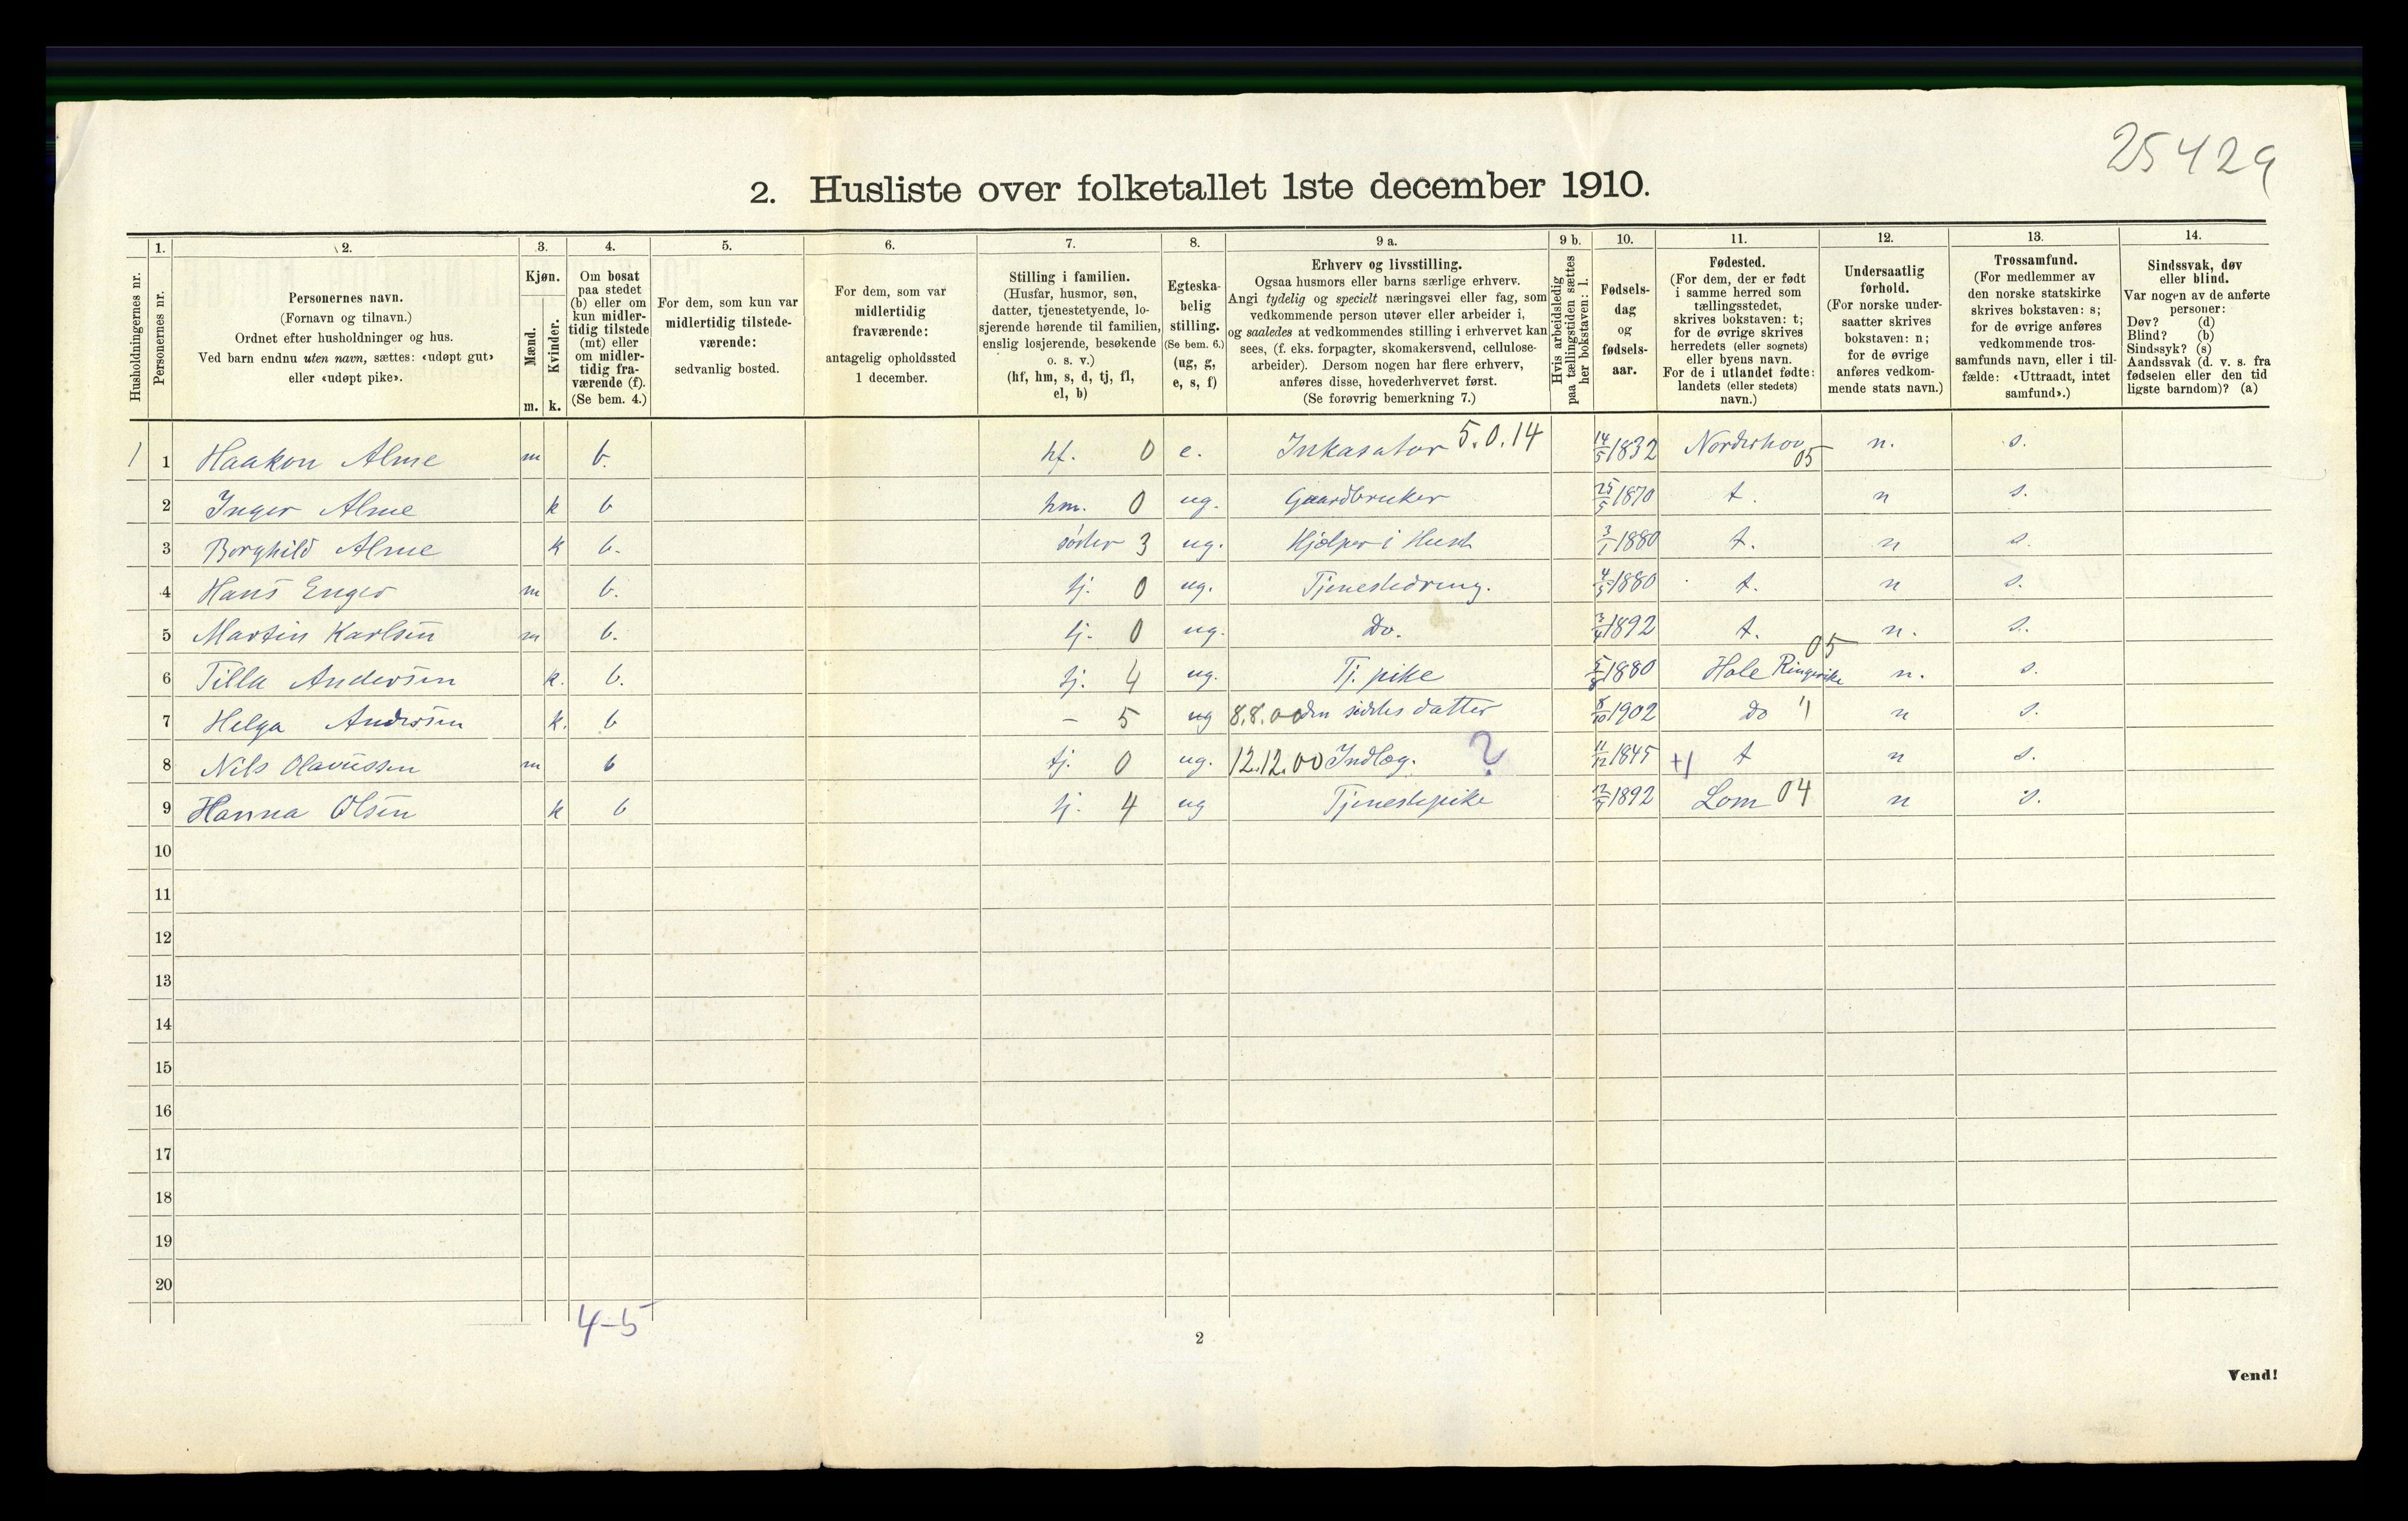 25429
2. Husliste over folketallet 1ste december 1910.
Husholdningernes nr.
1. Personernes nr.
2. Personernes navn. (Fornavn og tilnavn.) Ordnet efter husholdninger og hus. Ved barn endnu uten navn, sættes: «udøpt gut» eller «udøpt pike».
3. Kjøn. Mænd. m. Kvinder. k.
4. Om bosat paa stedet (b) eller om kun midlertidig tilstede (mt) eller om midlertidig fraværende (f). (Se bem. 4.)
5. For dem, som kun var midlertidig tilstedeværende: sedvanlig bosted.
6. For dem, som var midlertidig fraværende: antagelig opholdssted 1 december.
7. Stilling i familien. (Husfar, husmor, søn, datter, tjenestetyende, losjerende hørende til familien, enslig losjerende, besøkende o. s. v.) (hf, hm, s, d, tj, fl, el, b)
8. Egteskabelig stilling. (Se bem. 6.) (ug, g, e, s, f)
9 a. Erhverv og livsstilling. Ogsaa husmors eller barns særlige erhverv. Angi tydelig og specielt næringsvei eller fag, som vedkommende person utøver eller arbeider i, og saaledes at vedkommendes stilling i erhvervet kan sees, (f. eks. forpagter, skomakersvend, cellulosearbeider). Dersom nogen har flere erhverv, anføres disse, hovederhvervet først. (Se forøvrig bemerkning 7.)
9 b. Hvis arbeidsledig paa tællingstiden sættes her bokstaven: l.
10. Fødselsdag og fødselsaar.
11. Fødested. (For dem, der er født i samme herred som tællingsstedet, skrives bokstaven: t; for de øvrige skrives herredets (eller sognets) eller byens navn. For de i utlandet fødte: landets (eller stedets) navn.)
12. Undersaatlig forhold. (For norske undersaatter skrives bokstaven: n; for de øvrige anføres vedkommende stats navn.)
13. Trossamfund. (For medlemmer av den norske statskirke skrives bokstaven: s; for de øvrige anføres vedkommende trossamfunds navn, eller i tilfælde: «Uttraadt, intet samfund».)
14. Sindssvak, døv eller blind. Var nogen av de anførte personer: Døv? (d) Blind? (b) Sindssyk? (s) Aandssvak (d. v. s. fra fødselen eller den tidligste barndom)? (a)
1 1 Haakon Alme m b. hf. 0 e. Inkasator 5.0.14 14/5 1832 Norderhov 05 n. s.
2 Inger Alme k b hm. 0 ug. Gaardbruker 25/5 1870 t. n s.
3 Borghild Alme k b. søster 3 ug. Hjelper i Huset 3/1 1880 t. n s.
4 Hans Enger m b. tj. 0 ug. Tjenestedreng. 4/5 1880 t. n s.
5 Martin Karlsen m b. tj. 0 ug. Do. 3/4 1892 t. n. s.
6 Tilla Andersen k. b. tj. 4 ug. Tj. pike 5/8 1880 Hole Ringerike 05 n. s.
7 Helga Andersen k. b - 5 ug 8.8.00 den sidstes datter 8/10 1902 Do " n s.
8 Nils Olavussen m b tj. 0 ug. 12.12.00 Indlæg. ? 11/12 1845 +1 t n s.
9 Hanna Olsen k b tj. 4 ug Tjenestepike 1892 Lom 04 n s.
10
11
12
13
14
15
16
17
18
19
20
4-5
2
Vend!